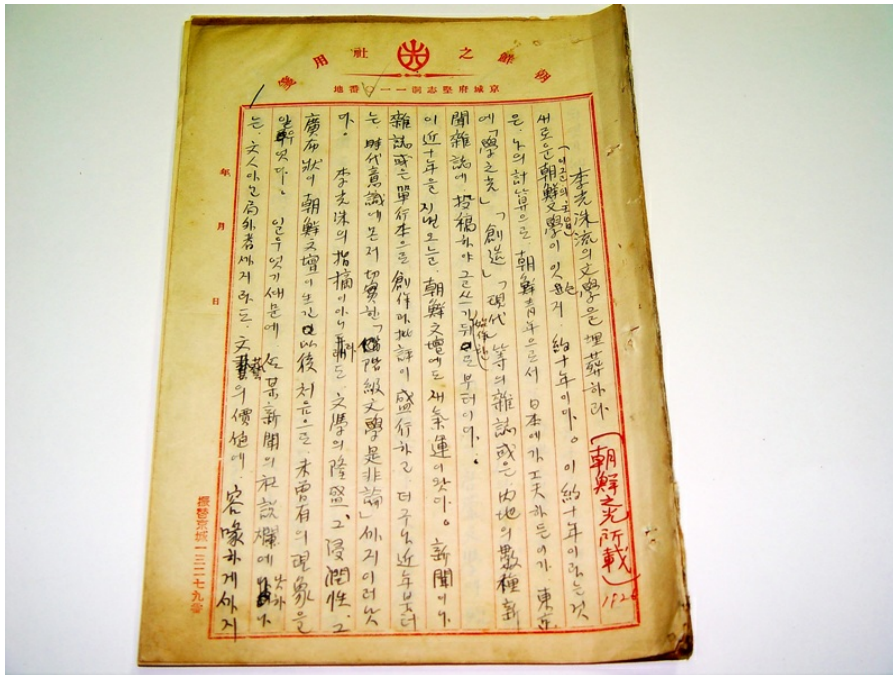 朝鮮之光社用箋
京城府堅志洞一一〇番地
李光洙流의 文學을 埋葬하라 [朝鮮之光所載]
새로운 朝鮮文學이 잇은지 約十年이다。 이 約十年이라는것
은、나의 計算으로 朝鮮靑年으로서 日本에가 工夫하든이가 東京
에「學之光」「創造」「現代」等의 雜誌或은 內地의 數種新
聞雜誌에 投稿하야 글쓰기 始作한 뒤로부터이다。
이 近十年을 지낼 오늘 朝鮮文壇에도 새氣運이 왓다。 新聞이나
雜誌或은 單行本으로 創作과 批評이 盛行하고 더구나 近年부터
는 時代意識에 몬저 切實한「階級文學是非論」까지 이러낫
다。 李光洙의 指摘이 아니라도 文學의 隆盛、그 浸潤性、그
廣布狀이 朝鮮文壇이 생긴 以後 처음으로 未曾有의 現象을
일우엇다。 일우엇기 때문에 某新聞의 社說欄에 낫하나
는、文人아닌 局外者까지라도、文藝의 價値에、容喙하게까지
年 月 日
振替京城一三二七九番